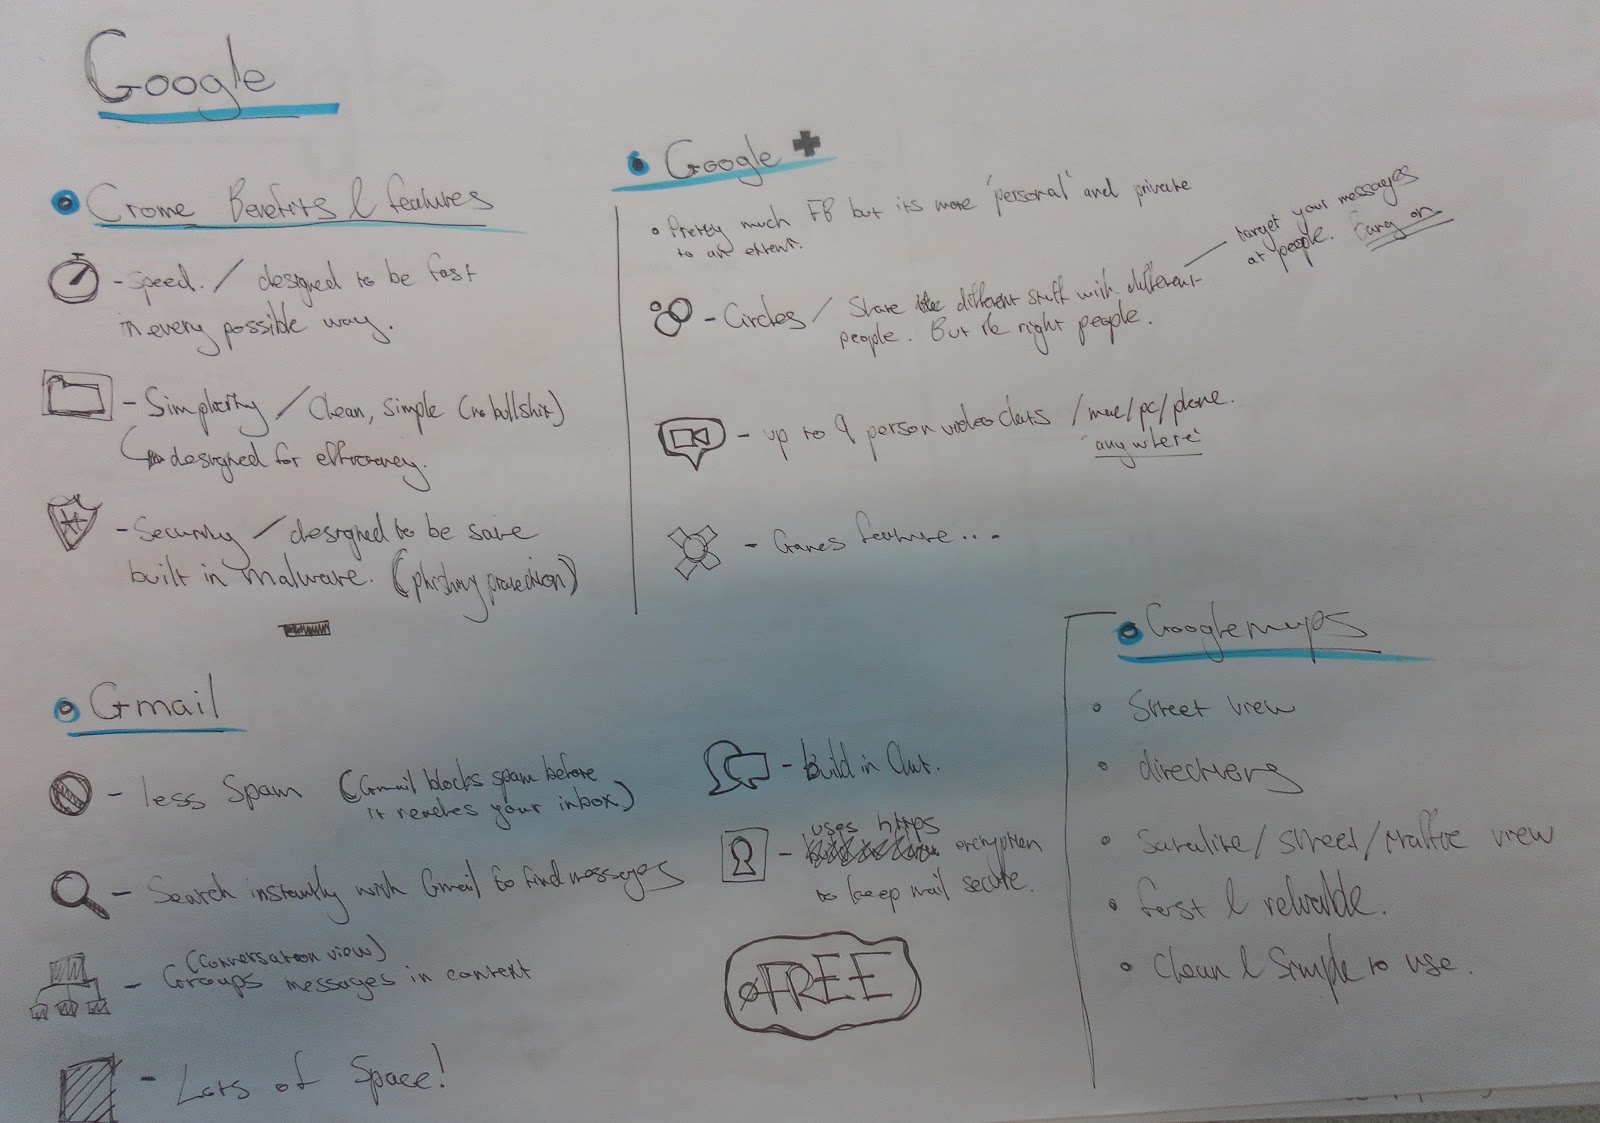 Google
Crome Benefits & features
- Speed. / designed to be fast
in every possible way.
- Simplicity / Clean, simple (no bullshit)
designed for efficiency.
- Security / designed to be save
built in malware. (phishing protection)
Google +
Pretty much FB but its more 'personal' and private
to an extent.
- Circles / Share different stuff with different
people. But the right people.
target your messages
at people.
- up to 9 person video chats / mac/pc/phone.
'anywhere'
- Games feature....
Gmail
- less Spam (Gmail blocks spam before
it reaches your inbox)
- Search instantly with Gmail to find messages
(Conversation view)
- Groups messages in context
- Lots of Space!
- build in Chat.
uses https
- encryption
to keep mail secure.
FREE
Google maps
Street view
directions
Satalite / Street / traffic view
fast & reliable.
Clean & Simple to use.